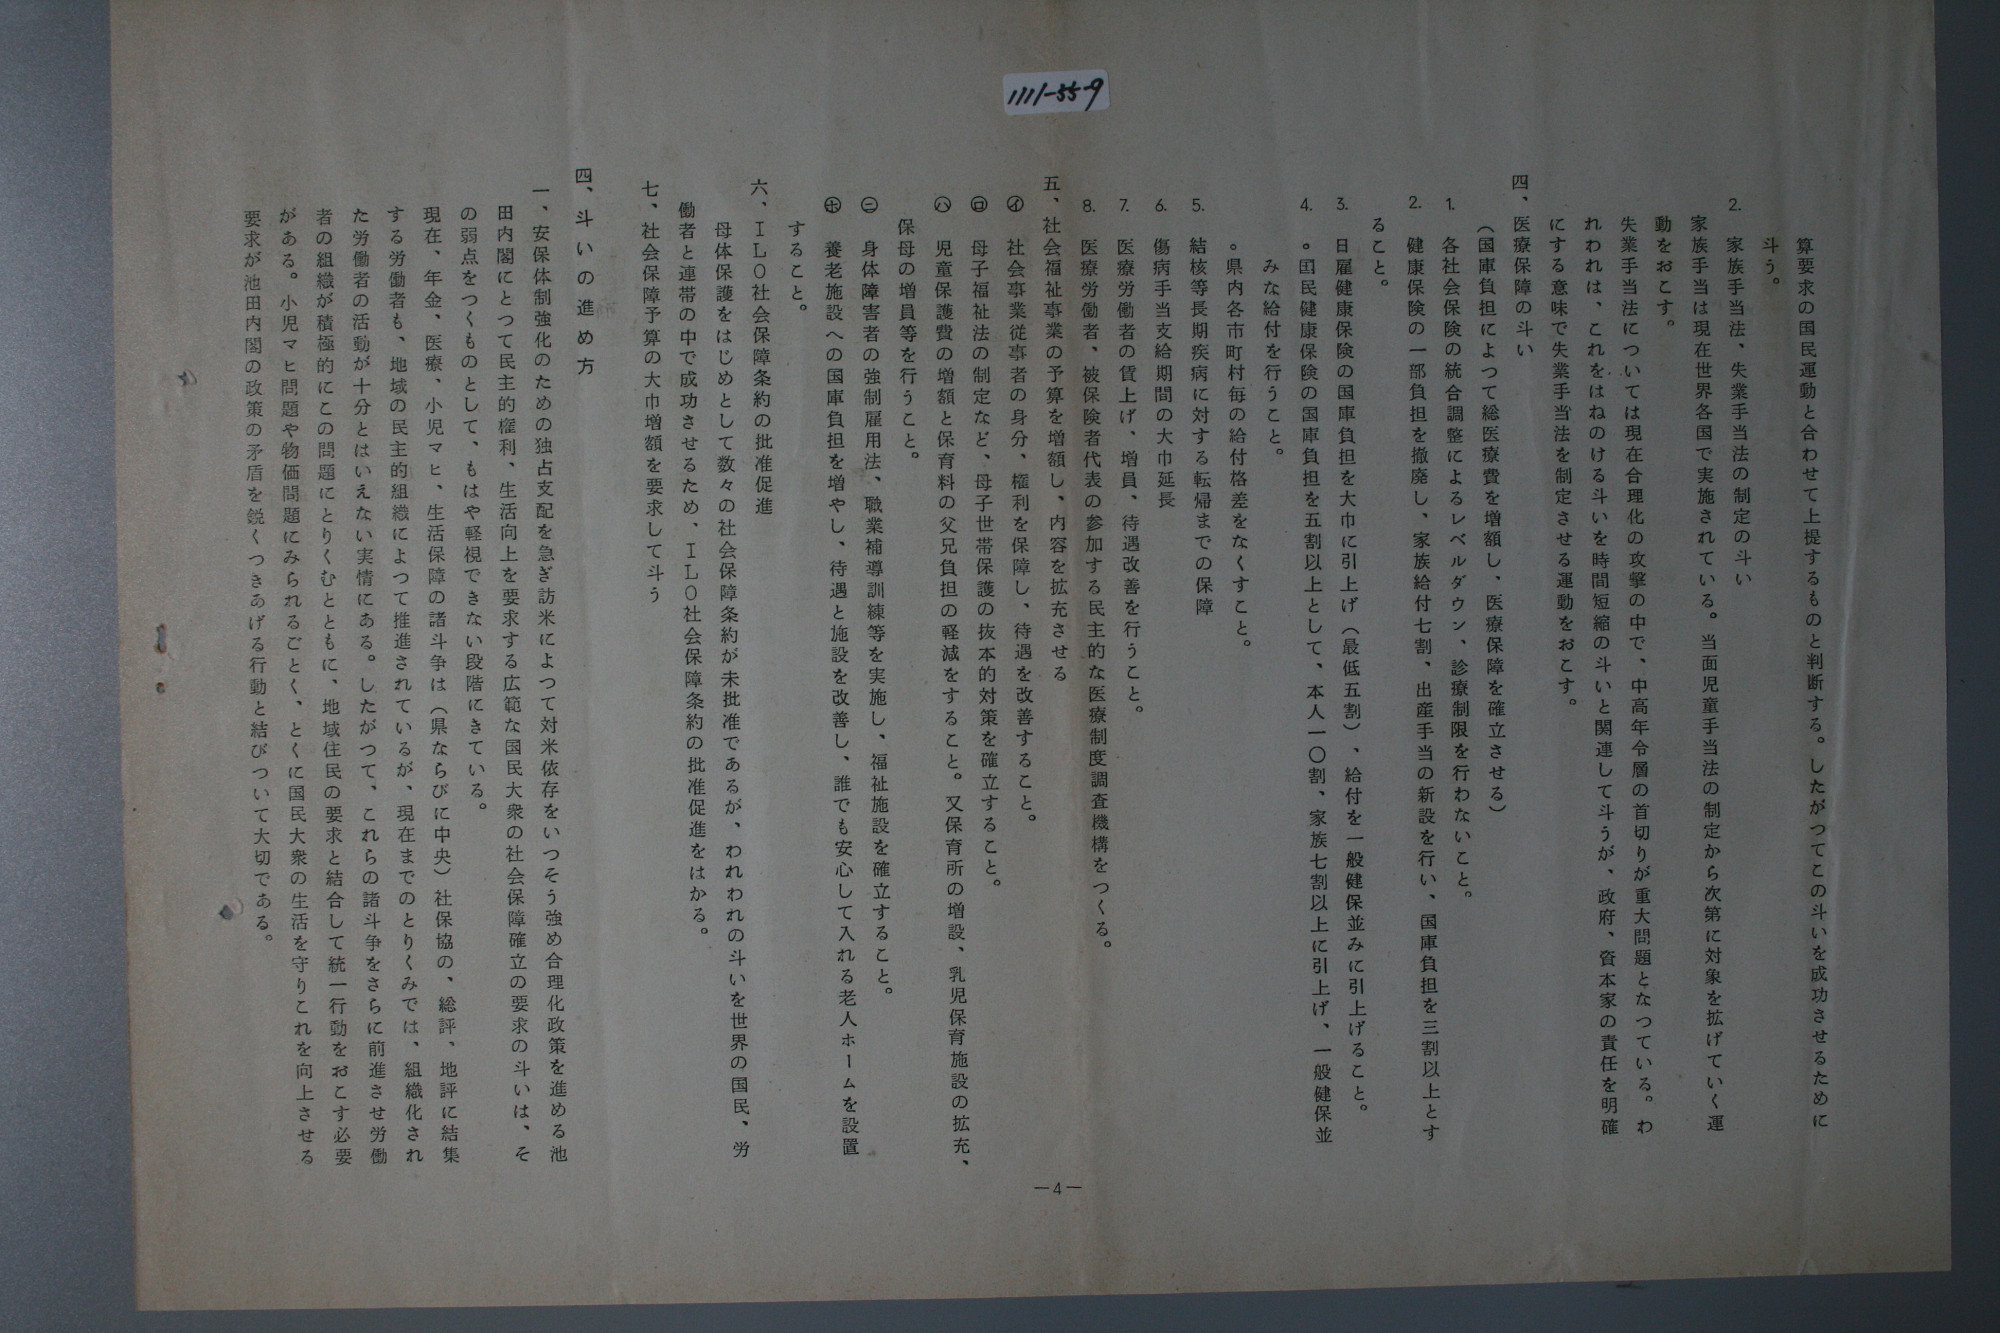 1111-55-9
算要求の国民運動と合わせて上提するものと判断する。したがつてこの斗いを成功させるために
斗う。
2. 家族手当法、失業手当法の制定の斗い
家族手当は現在世界各国で実施されている。当面児童手当法の制定から次第に対象を拡げていく運
動をおこす。
失業手当法については現在合理化の攻撃の中で、中高年令層の首切りが重大問題となつている。わ
れわれは、これをはねのける斗いを時間短縮の斗いと関連して斗うが、政府、資本家の責任を明確
にする意味で失業手当法を制定させる運動をおこす。
四、医療保障の斗い
(国庫負担によつて総医療費を増額し、医療保障を確立させる)
1. 各社会保険の統合調整によるレベルダウン、診療制限を行わないこと。
2. 健康保険の一部負担を撤廃し、家族給付七割、出産手当の新設を行い、国庫負担を三割以上とす
ること。
3. 日雇健康保険の国庫負担を大巾に引上げ(最低五割)、給付を一般健保並みに引上げること。
4. 。国民健康保険の国庫負担を五割以上として、本人一〇割、家族七割以上に引上げ、一般健保並
みな給付を行うこと。
。県内各市町村毎の給付格差をなくすこと。
5. 結核等長期疾病に対する転帰までの保障
6. 傷病手当支給期間の大巾延長
7. 医療労働者の賃上げ、増員、待遇改善を行うこと。
8. 医療労働者、被保険者代表の参加する民主的な医療制度調査機構をつくる。
五、社会福祉事業の予算を増額し、内容を拡充させる
㋑ 社会事業従事者の身分、権利を保障し、待遇を改善すること。
㋺ 母子福祉法の制定など、母子世帯保護の抜本的対策を確立すること。
㋩ 児童保護費の増額と保育料の父兄負担の軽減をすること。又保育所の増設、乳児保育施設の拡充、
保母の増員等を行うこと。
㋥ 身体障害者の強制雇用法、職業補導訓練等を実施し、福祉施設を確立すること。
㋭ 養老施設への国庫負担を増やし、待遇と施設を改善し、誰でも安心して入れる老人ホームを設置
すること。
六、ILO社会保障条約の批准促進
母体保護をはじめとして数々の社会保障条約が未批准であるが、われわれの斗いを世界の国民、労
働者と連帯の中で成功させるため、ILO社会保障条約の批准促進をはかる。
七、社会保障予算の大巾増額を要求して斗う
四、斗いの進め方
一、安保体制強化のための独占支配を急ぎ訪米によつて対米依存をいつそう強め合理化政策を進める池
田内閣にとつて民主的権利、生活向上を要求する広範な国民大衆の社会保障確立の要求の斗いは、そ
の弱点をつくものとして、もはや軽視できない段階にきている。
現在、年金、医療、小児マヒ、生活保障の諸斗争は(県ならびに中央)社保協の、総評、地評に結集
する労働者も、地域の民主的組織によつて推進されているが、現在までのとりくみでは、組織化され
た労働者の活動が十分とはいえない実情にある。したがつて、これらの諸斗争をさらに前進させ労働
者の組織が積極的にこの問題にとりくむとともに、地域住民の要求と結合して統一行動をおこす必要
がある。小児マヒ問題や物価問題にみられるごとく、とくに国民大衆の生活を守りこれを向上させる
要求が池田内閣の政策の矛盾を鋭くつきあげる行動と結びついて大切である。
—4—